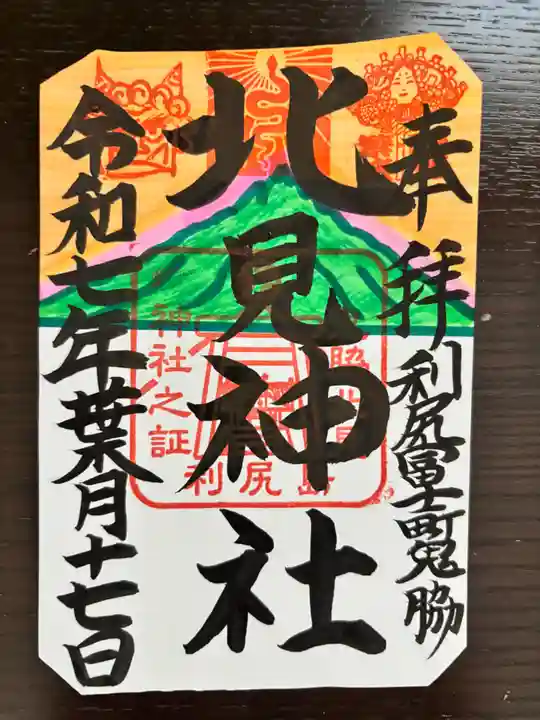 奉拝
利尻冨士町鬼脇
北見神社
令和七年葉月十七日
神社之証
利尻島